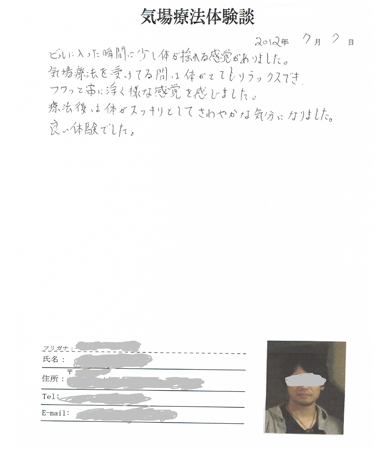 気場療法体験談
2012年 7月 7日
ビルに入った瞬間に少し体が揺れる感覚がありました。
気場療法を受けてる間は体がとてもリラックスでき
フワっと宙に浮く様な感覚を感じました。
療法後は体がスッキリとしてさわやかな気分になりました。
良い体験でした。
フリガナ:
氏名:
〒
住所:
Tel:
E-mail: